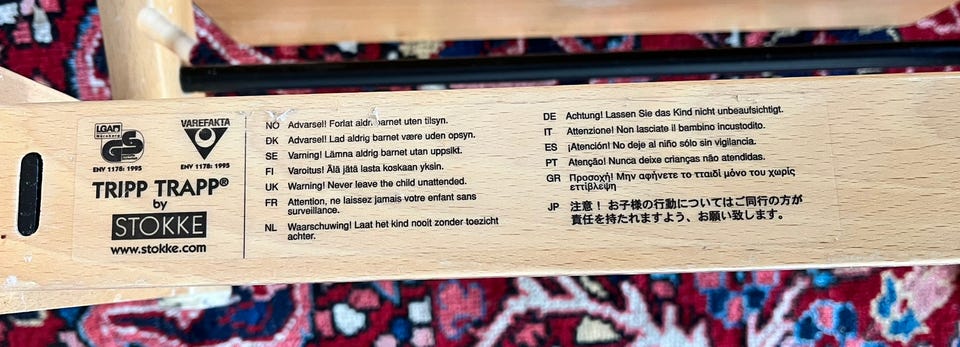 LGA
Nürnberg
GS
ENV 1178: 1995
VAREFAKTA
ENV 1178: 1995
TRIPP TRAPP®
by
STOKKE
www.stokke.com
NO Advarsel! Forlat aldri barnet uten tilsyn.
DK Advarsel! Lad aldrig barnet være uden opsyn.
SE Varning! Lämna aldrig barnet utan uppsikt.
FI Varoitus! Älä jätä lasta koskaan yksin.
UK Warning! Never leave the child unattended.
FR Attention, ne laissez jamais votre enfant sans
surveillance.
NL Waarschuwing! Laat het kind nooit zonder toezicht
achter.
DE Achtung! Lassen Sie das Kind nicht unbeaufsichtigt.
IT Attenzione! Non lasciate il bambino incustodito.
ES ¡Atención! No deje al niño sólo sin vigilancia.
PT Atenção! Nunca deixe crianças não atendidas.
GR Προσοχή! Μην αφήνετε το τταιδί μόνο του χωρίς
εττίβλεψη
JP 注意！ お子様の行動についてはご同行の方が
責任を持たれますよう、お願い致します。